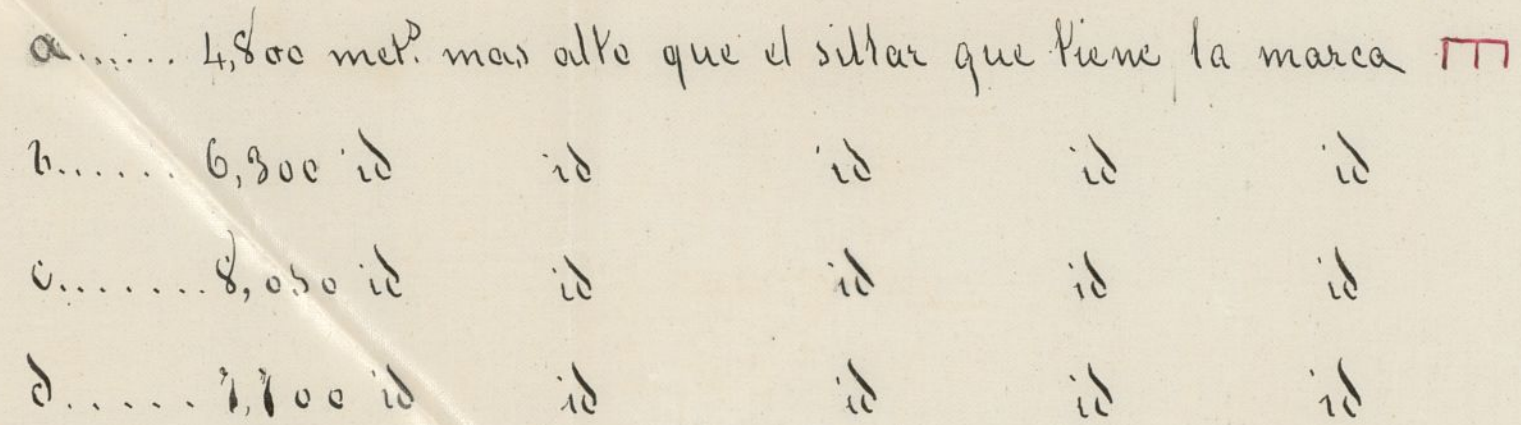 a...... 4,800 met.s mas alto que el sillar que tiene la marca E
b...... 6,300 id id id id id
c....... 8,050 id id id id id
d...... id id id id id